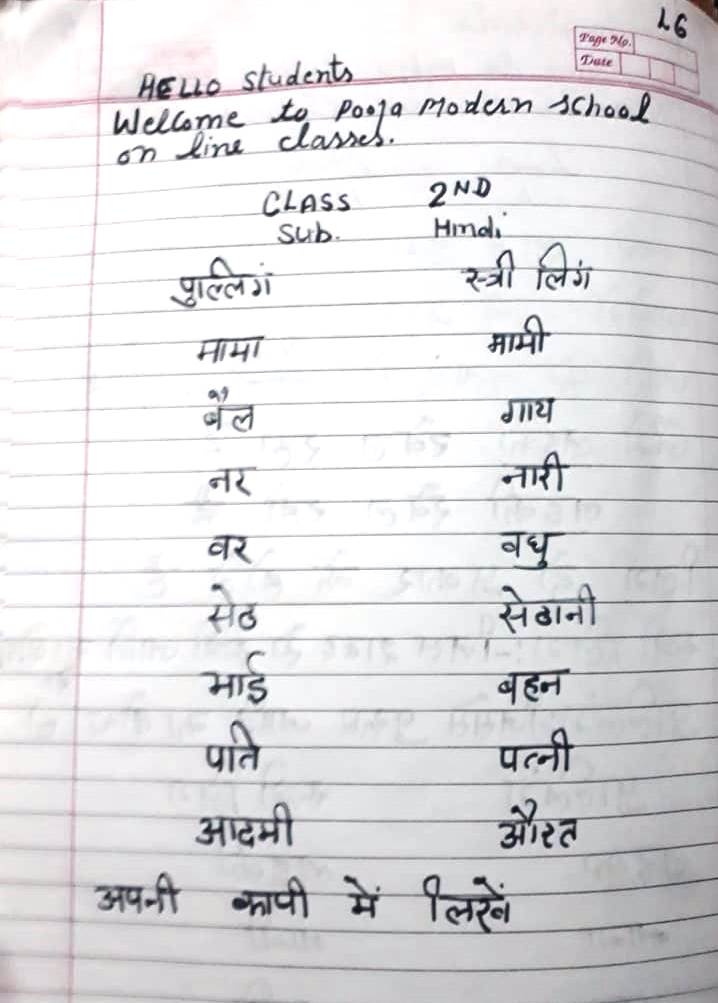 26
Page No.
Date
HELLO Students
Wellcome to Pooja Modern School
on line classes.
CLASS 2ND
Sub. Hindi
पुल्लिगं स्त्री लिगं
मामा मामी
बैल गाय
नर नारी
वर वधु
सेठ सेठानी
भाई बहन
पति पत्नी
आदमी औरत
अपनी कापी में लिखें